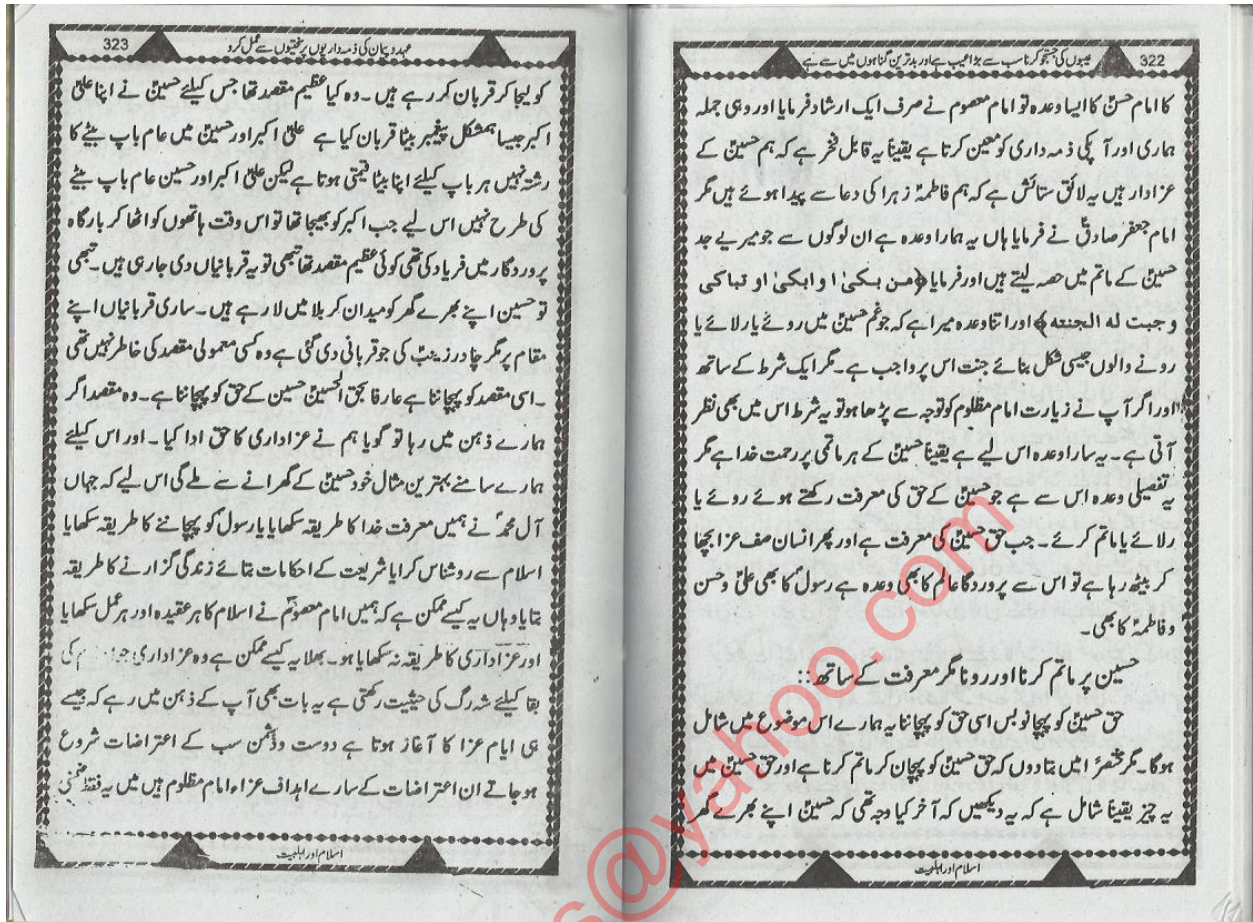 322
عیبوں کی جستجو کرنا سب سے بڑا عیب ہے اور بدترین گناہوں میں سے ہے
کا امام حسنؑ کا ایسا وعدہ تو امام معصوم نے صرف ایک ارشاد فرمایا اور وہی جملہ
ہماری اور آپکی ذمہ داری کو معین کرتا ہے یقیناً یہ قابل فخر ہے کہ ہم حسینؑ کے
عزادار ہیں یہ لائق ستائش ہے کہ ہم فاطمہؑ زہرا کی دعا سے پیدا ہوئے ہیں مگر
امام جعفر صادقؑ نے فرمایا ہاں یہ ہمارا وعدہ ہے ان لوگوں سے جو میرے جد
حسینؑ کے ماتم میں حصہ لیتے ہیں اور فرمایا ﴿من بکیٰ او ابکیٰ او تباکی
وجبت لہ الجنتہ﴾ اور اتنا وعدہ میرا ہے کہ جو غم حسینؑ میں روئے یا رلائے یا
رونے والوں جیسی شکل بنائے جنت اس پر واجب ہے۔ مگر ایک شرط کے ساتھ
اور اگر آپ نے زیارت امام مظلوم کو توجہ سے پڑھا ہو تو یہ شرط اس میں بھی نظر
آتی ہے۔ یہ سارا وعدہ اس لیے ہے یقیناً حسینؑ کے ہر ماتمی پر رحمت خدا ہے مگر
یہ تفصیلی وعدہ اس سے ہے جو حسینؑ کے حق کی معرفت رکھتے ہوئے روئے یا
رلائے یا ماتم کرے۔ جب حق حسینؑ کی معرفت ہے اور پھر انسان صف عزا بچھا
کر بیٹھ رہا ہے تو اس سے پروردگار عالم کا بھی وعدہ ہے رسولؐ کا بھی علیؑ و حسن
و فاطمہؑ کا بھی۔
حسین پر ماتم کرنا اور رونا مگر معرفت کے ساتھ::
حق حسینؑ کو پہچانو بس اسی حق کو پہچاننا یہ ہمارے اس موضوع میں شامل
ہوگا۔ مگر مختصراً میں بتادوں کہ حق حسینؑ کو پہچان کر ماتم کرنا ہے اور حق حسینؑ میں
یہ چیز یقیناً شامل ہے کہ یہ دیکھیں کہ آخر کیا وجہ تھی کہ حسینؑ اپنے بھرے گھر
اسلام اور اہلبیت
323
عہد و پیمان کی ذمہ داریوں پر سختیوں سے عمل کرو
کو لیجا کر قربان کر رہے ہیں۔ وہ کیا عظیم مقصد تھا جس کیلئے حسینؑ نے اپنا علیؑ
اکبر جیسا ہمشکل پیغمبر بیٹا قربان کیا ہے علیؑ اکبر اور حسینؑ میں عام باپ بیٹے کا
رشتہ نہیں ہر باپ کیلئے اپنا بیٹا قیمتی ہوتا ہے لیکن علیؑ اکبر اور حسین عام باپ بیٹے
کی طرح نہیں اس لیے جب اکبر کو بھیجا تھا تو اس وقت ہاتھوں کو اٹھا کر بارگاہ
پروردگار میں فریاد کی تھی کوئی عظیم مقصد تھا تبھی تو یہ قربانیاں دی جارہی ہیں۔ تبھی
تو حسین اپنے بھرے گھر کو میدان کربلا میں لا رہے ہیں۔ ساری قربانیاں اپنے
مقام پر مگر چادر زینبؑ کی جو قربانی دی گئی ہے وہ کسی معمولی مقصد کی خاطر نہیں تھی
۔اسی مقصد کو پہچاننا ہے عارفا بحق الحسینؑ حسین کے حق کو پہچاننا ہے۔ وہ مقصد اگر
ہمارے ذہن میں رہا تو گویا ہم نے عزاداری کا حق ادا کیا۔ اور اس کیلئے
ہمارے سامنے بہترین مثال خود حسینؑ کے گھرانے سے ملے گی اس لیے کہ جہاں
آل محمدؐ نے ہمیں معرفت خدا کا طریقہ سکھایا یا رسولؐ کو پہچاننے کا طریقہ سکھایا
اسلام سے روشناس کرایا شریعت کے احکامات بتائے زندگی گزارنے کا طریقہ
بتایا وہاں یہ کیسے ممکن ہے کہ ہمیں امام معصومؑ نے اسلام کا ہر عقیدہ اور ہر عمل سکھایا
اور عزاداری کا طریقہ نہ سکھایا ہو۔ بھلا یہ کیسے ممکن ہے وہ عزاداری جو کی
بقا کیلئے شہ رگ کی حیثیت رکھتی ہے یہ بات بھی آپ کے ذہن میں رہے کہ جیسے
ہی ایام عزا کا آغاز ہوتا ہے دوست و دشمن سب کے اعتراضات شروع
ہو جاتے ان اعتراضات کے سارے اہداف عزاء امام مظلوم ہیں میں یہ فقط ضمنی
اسلام اور اہلبیت
s@yahoo.com